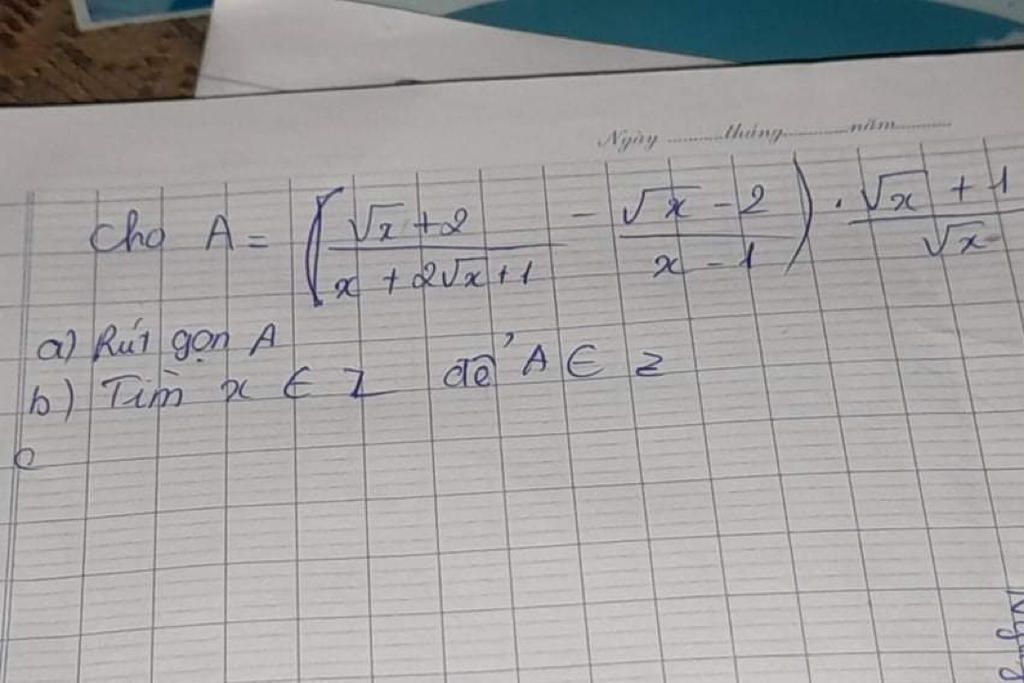 Ngày ........ tháng ........ năm ........
Cho A = ( (√x + 2)/(x + 2√x + 1) - (√x - 2)/(x - 1) ) . (√x + 1)/√x
a) Rút gọn A
b) Tìm x ∈ Z để A ∈ Z
c